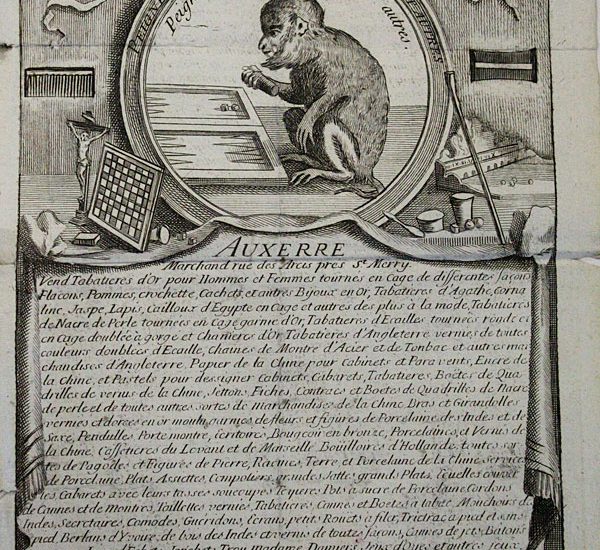 Peignes
autres.
AUXERRE
Marchand rue des Arcis pres St. Merry.
Vend Tabatieres d'Or pour Hommes et Femmes tournés en Cage de differantes façons
Flacons, Pommes, crochette, Cachets, et autres Bijoux en Or, Tabatieres d'Agathe, Corna
line, Jaspe, Lapis, Cailloux d'Egypte en Cage et autres des plus à la mode, Tabatières
de Nacre de Perle tournées en Cage garnie d'Or, Tabatieres d'Ecailles tournées ronde et
en Cage doublée à gorge et Charneres d'Or, Tabatières d'Angleterre vernies de toutes
couleurs doublées d'Ecaille, chaines de Montre d'Acier et de Tombac et autres mar
chandises d'Angleterre, Papier de la Chine pour Cabinets et Paravents, Encre de
la Chine, et Pastels pour dessigner Cabinets, Cabarets, Tabatieres, Boëtes de Qua
drilles de vernis de la Chine, Jettons, Fiches, Contrats et Boetes de Quadrilles de Nacre
de perle et de toutes autres sortes de marchandises de la Chine, Bras et Girandolles
vernies et dorées en or moulu garnies de fleurs et figures de Porcelaine des Indes et de
Saxe, Pendulles Porte montre, écritoires, Bougeoir en bronze, Porcelaines et Vernis de
la Chine, Caffetieres du Levant et de Marseille Bouilloires d'Hollande, toutes sor
tes de Pagodes et Figures de Pierre, Racines, Terre et Porcelaine de la Chine, Services
de Porcelaine, Plats, Assiettes, Compotiers, grandes Jattes, grands Plats, Ecuelles couver
tes, Cabarets avec leurs tasses soucoupes Teyeres Pots à sucre de Porcelaine, Cordons
de Cannes et de Montres, Toillettes vernies, Tabatieres, Cannes et Boetes à tabac, Mouchoirs des
Indes, Secretaires, Comodes, Guéridons, Ecrans, petits Rouets à filer, Trictrac à pied et sans
pied, Berlans d'Yvoire, de bois des Indes et vernis de toutes façons, Cannes de jets, Batons
Trou madame, Damiers, Jeux d'Oye et autres jeux